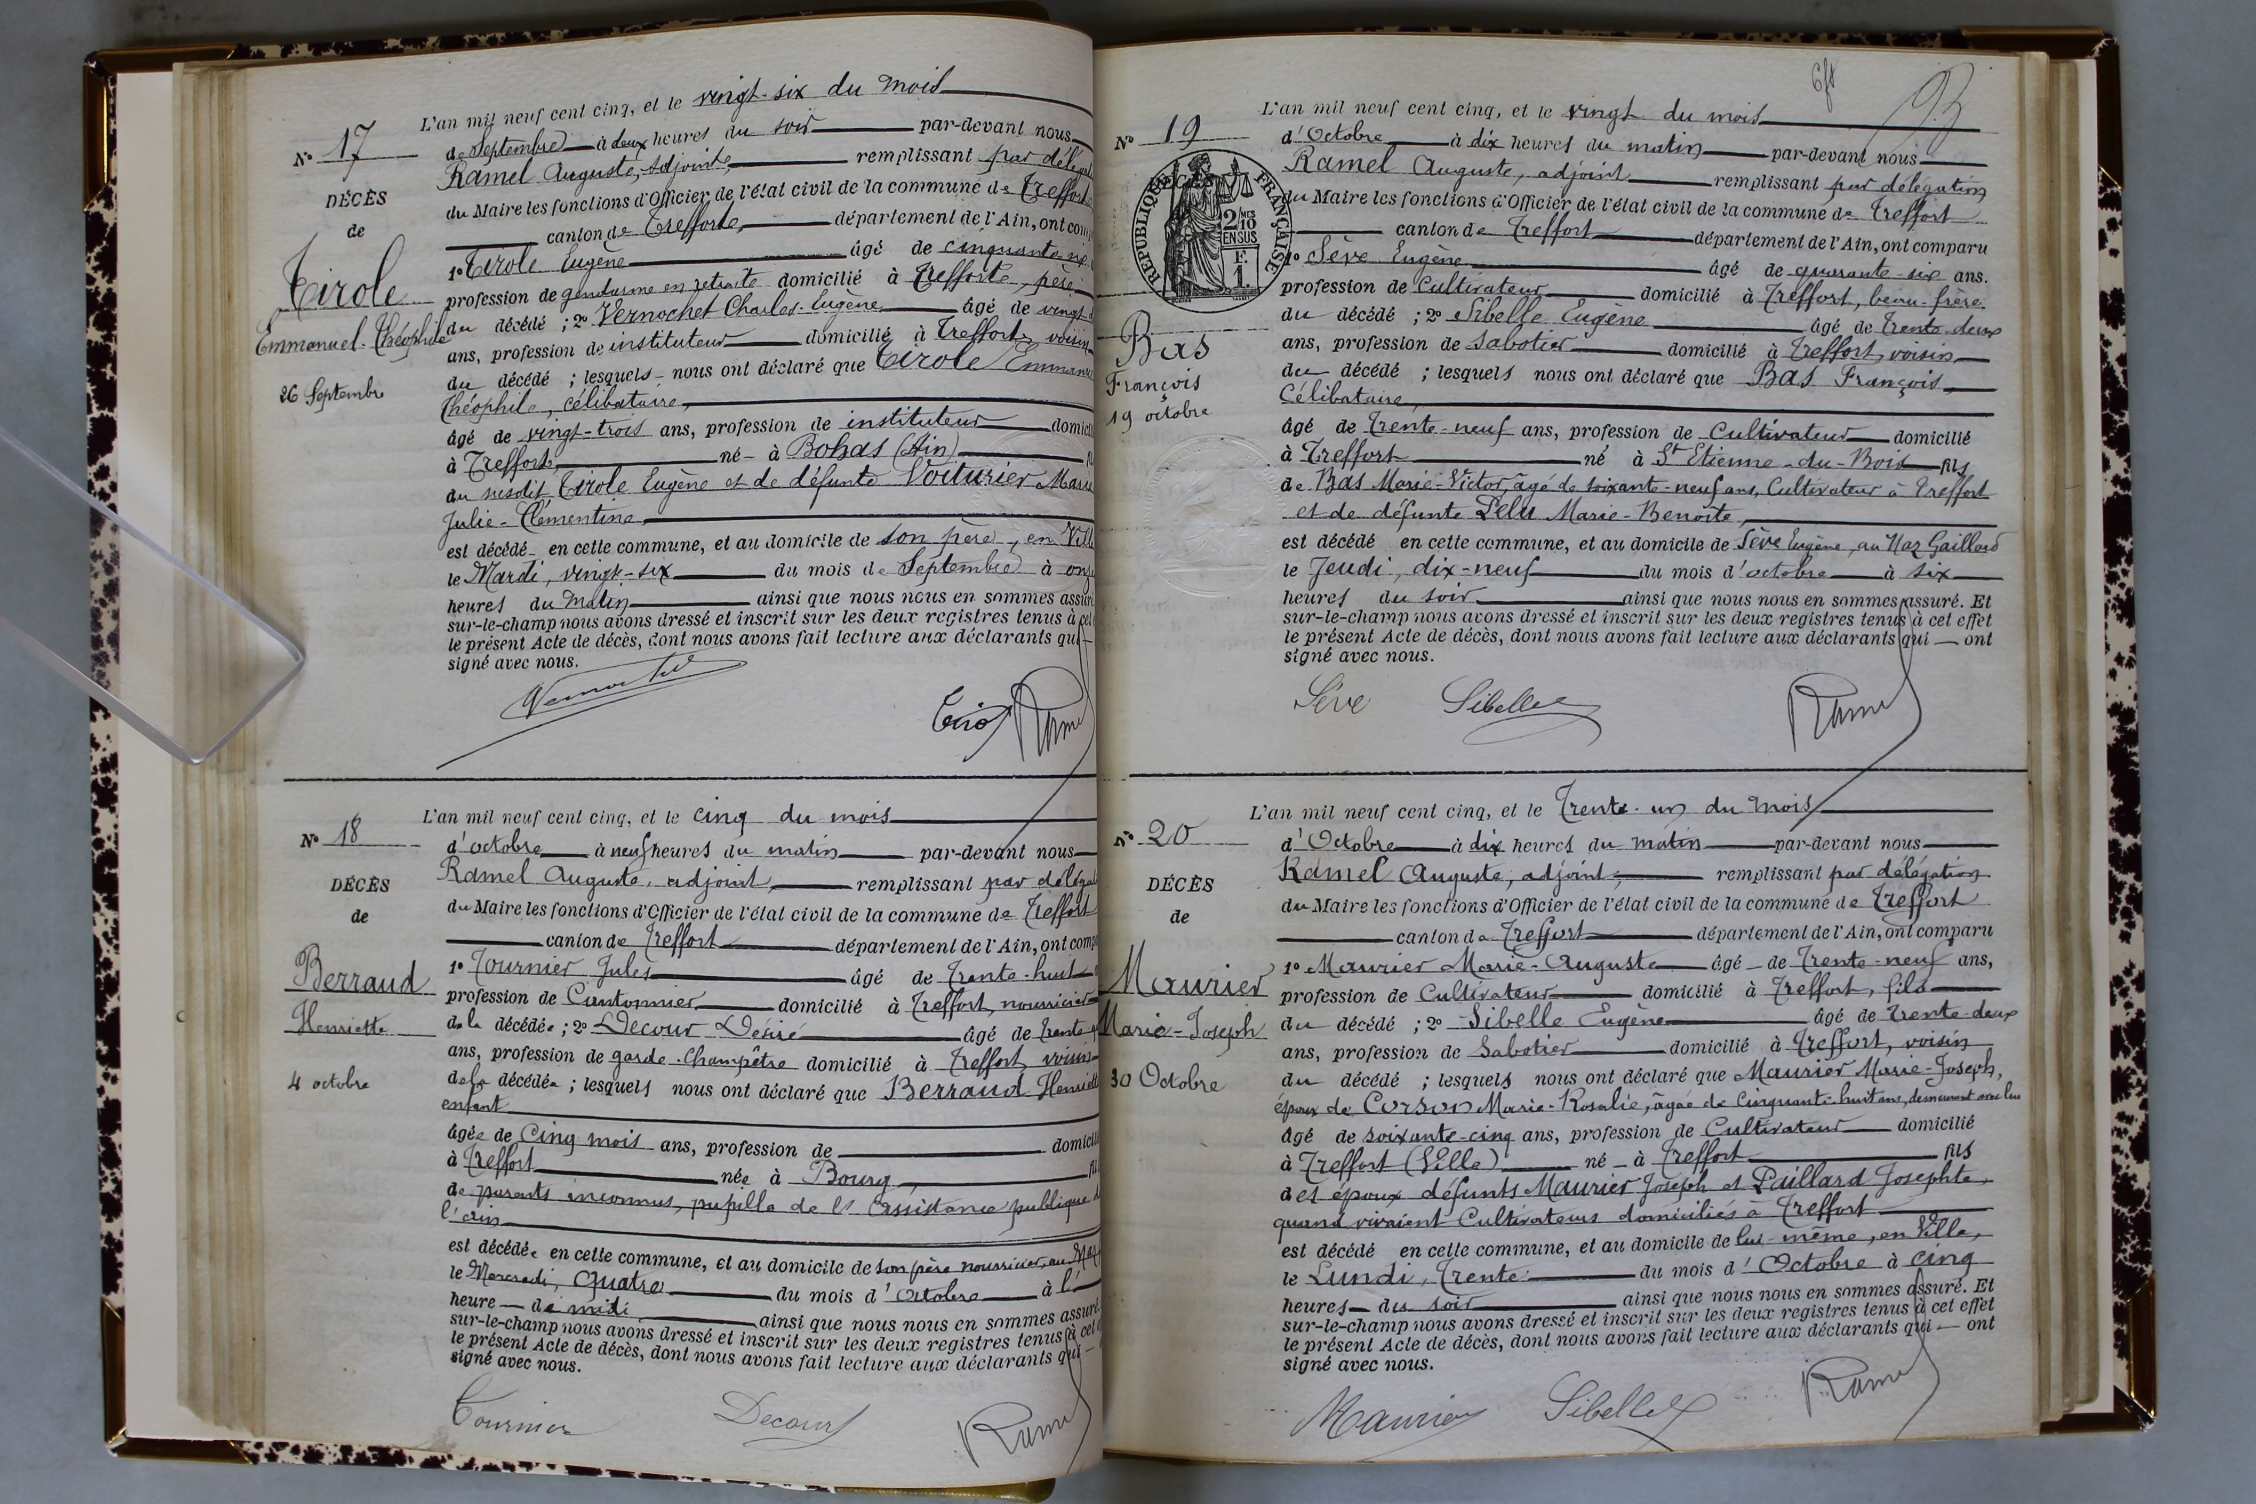 N° 17
DÉCÈS
de
Tirole
Emmanuel-Théophile
26 Septembre
L'an mil neuf cent cinq, et le vingt-six du mois
de Septembre à deux heures du soir par-devant nous
Ramel Auguste, adjoint, remplissant par
du Maire les fonctions d'Officier de l'état civil de la commune de Treffort
canton de Treffort, département de l'Ain, ont
1° Tirole Eugène âgé de cinquante
profession de gendarme en retraite domicilié à Treffort, père
du décédé ; 2° Vernochet Charles-Eugène âgé de vingt
ans, profession de instituteur domicilié à Treffort, voisin
du décédé ; lesquels nous ont déclaré que Tirole
Théophile, célibataire,
âgé de vingt-trois ans, profession de instituteur
à Treffort, né à Bohas (Ain)
du susdit Tirole Eugène et de défunte Voiturier Marie
Julie-Clémentine
est décédé en cette commune, et au domicile de son père, en
le Mardi, vingt-six du mois de Septembre à
heures du matin ainsi que nous nous en sommes
sur-le-champ nous avons dressé et inscrit sur les deux registres tenus à
le présent Acte de décès, dont nous avons fait lecture aux déclarants qui
signé avec nous.
Ramel
N° 18
DÉCÈS
de
Berraud
Henriette
4 octobre
L'an mil neuf cent cinq, et le cinq du mois
d'octobre à neuf heures du matin par-devant nous
Ramel Auguste, adjoint, remplissant par
du Maire les fonctions d'Officier de l'état civil de la commune de Treffort
canton de Treffort département de l'Ain, ont
1° Tournier Jules âgé de Trente-huit
profession de Cantonnier domicilié à Treffort, nourricier
de la décédée ; 2° Decour Désiré âgé de trente
ans, profession de garde-champêtre domicilié à Treffort, voisin
de la décédée ; lesquels nous ont déclaré que Berraud Henriette
enfant
âgée de Cinq mois ans, profession de
à Treffort née à Bourg,
de parents inconnus, pupille de l'Assistance publique de
l'ain
est décédée en cette commune, et au domicile de son père nourricier, au
le Mercredi, quatre du mois d'Octobre à l'
heure de midi ainsi que nous nous en sommes assuré.
sur-le-champ nous avons dressé et inscrit sur les deux registres tenus à cet
le présent Acte de décès, dont nous avons fait lecture aux déclarants qui
signé avec nous.
Tournier Decour Ramel
93
N° 19
RÉPUBLIQUE FRANÇAISE
2/10
EN SUS
F.
1.
Bas
François
19 octobre
L'an mil neuf cent cinq, et le vingt du mois
d'Octobre à dix heures du matin par-devant nous
Ramel Auguste, adjoint remplissant par délégation
du Maire les fonctions d'Officier de l'état civil de la commune de Treffort
canton de Treffort département de l'Ain, ont comparu
1° Sève Eugène âgé de quarante-six ans.
profession de Cultivateur domicilié à Treffort, beau-frère
du décédé ; 2° Sibelle Eugène âgé de trente-deux
ans, profession de Sabotier domicilié à Treffort, voisin
du décédé ; lesquels nous ont déclaré que Bas François,
Célibataire,
âgé de Trente-neuf ans, profession de Cultivateur domicilié
à Treffort né à St Etienne-du-Bois fils
de Bas Marie-Victor, âgé de soixante-neuf ans, Cultivateur à Treffort
et de défunte Lelu Marie-Benoite,
est décédé en cette commune, et au domicile de Sève Eugène, au Maz Gaillard
le Jeudi, dix-neuf du mois d'octobre à six
heures du soir ainsi que nous nous en sommes assuré. Et
sur-le-champ nous avons dressé et inscrit sur les deux registres tenus à cet effet
le présent Acte de décès, dont nous avons fait lecture aux déclarants qui ont
signé avec nous.
Sève Sibelle Ramel
N° 20
DÉCÈS
de
Maurier
Marie-Joseph
30 Octobre
L'an mil neuf cent cinq, et le Trente-un du mois
d'Octobre à dix heures du matin par-devant nous
Ramel Auguste, adjoint, remplissant par délégation
du Maire les fonctions d'Officier de l'état civil de la commune de Treffort
canton de Treffort département de l'Ain, ont comparu
1° Maurier Marie-Auguste âgé de Trente-neuf ans,
profession de Cultivateur domicilié à Treffort, fils
du décédé ; 2° Sibelle Eugène âgé de Trente-deux
ans, profession de Sabotier domicilié à Treffort, voisin
du décédé ; lesquels nous ont déclaré que Maurier Marie-Joseph,
époux de Corson Marie-Rosalie, âgée de Cinquante-huit ans, demeurant avec lui
âgé de soixante-cinq ans, profession de Cultivateur domicilié
à Treffort (Ville) né à Treffort fils
des époux défunts Maurier Joseph et Paillard Josephte,
quand vivaient Cultivateurs domiciliés à Treffort
est décédé en cette commune, et au domicile de lui-même, en Ville,
le Lundi, Trente du mois d'Octobre à Cinq
heures du soir ainsi que nous nous en sommes assuré. Et
sur-le-champ nous avons dressé et inscrit sur les deux registres tenus à cet effet
le présent Acte de décès, dont nous avons fait lecture aux déclarants qui ont
signé avec nous.
Maurier Sibelle Ramel